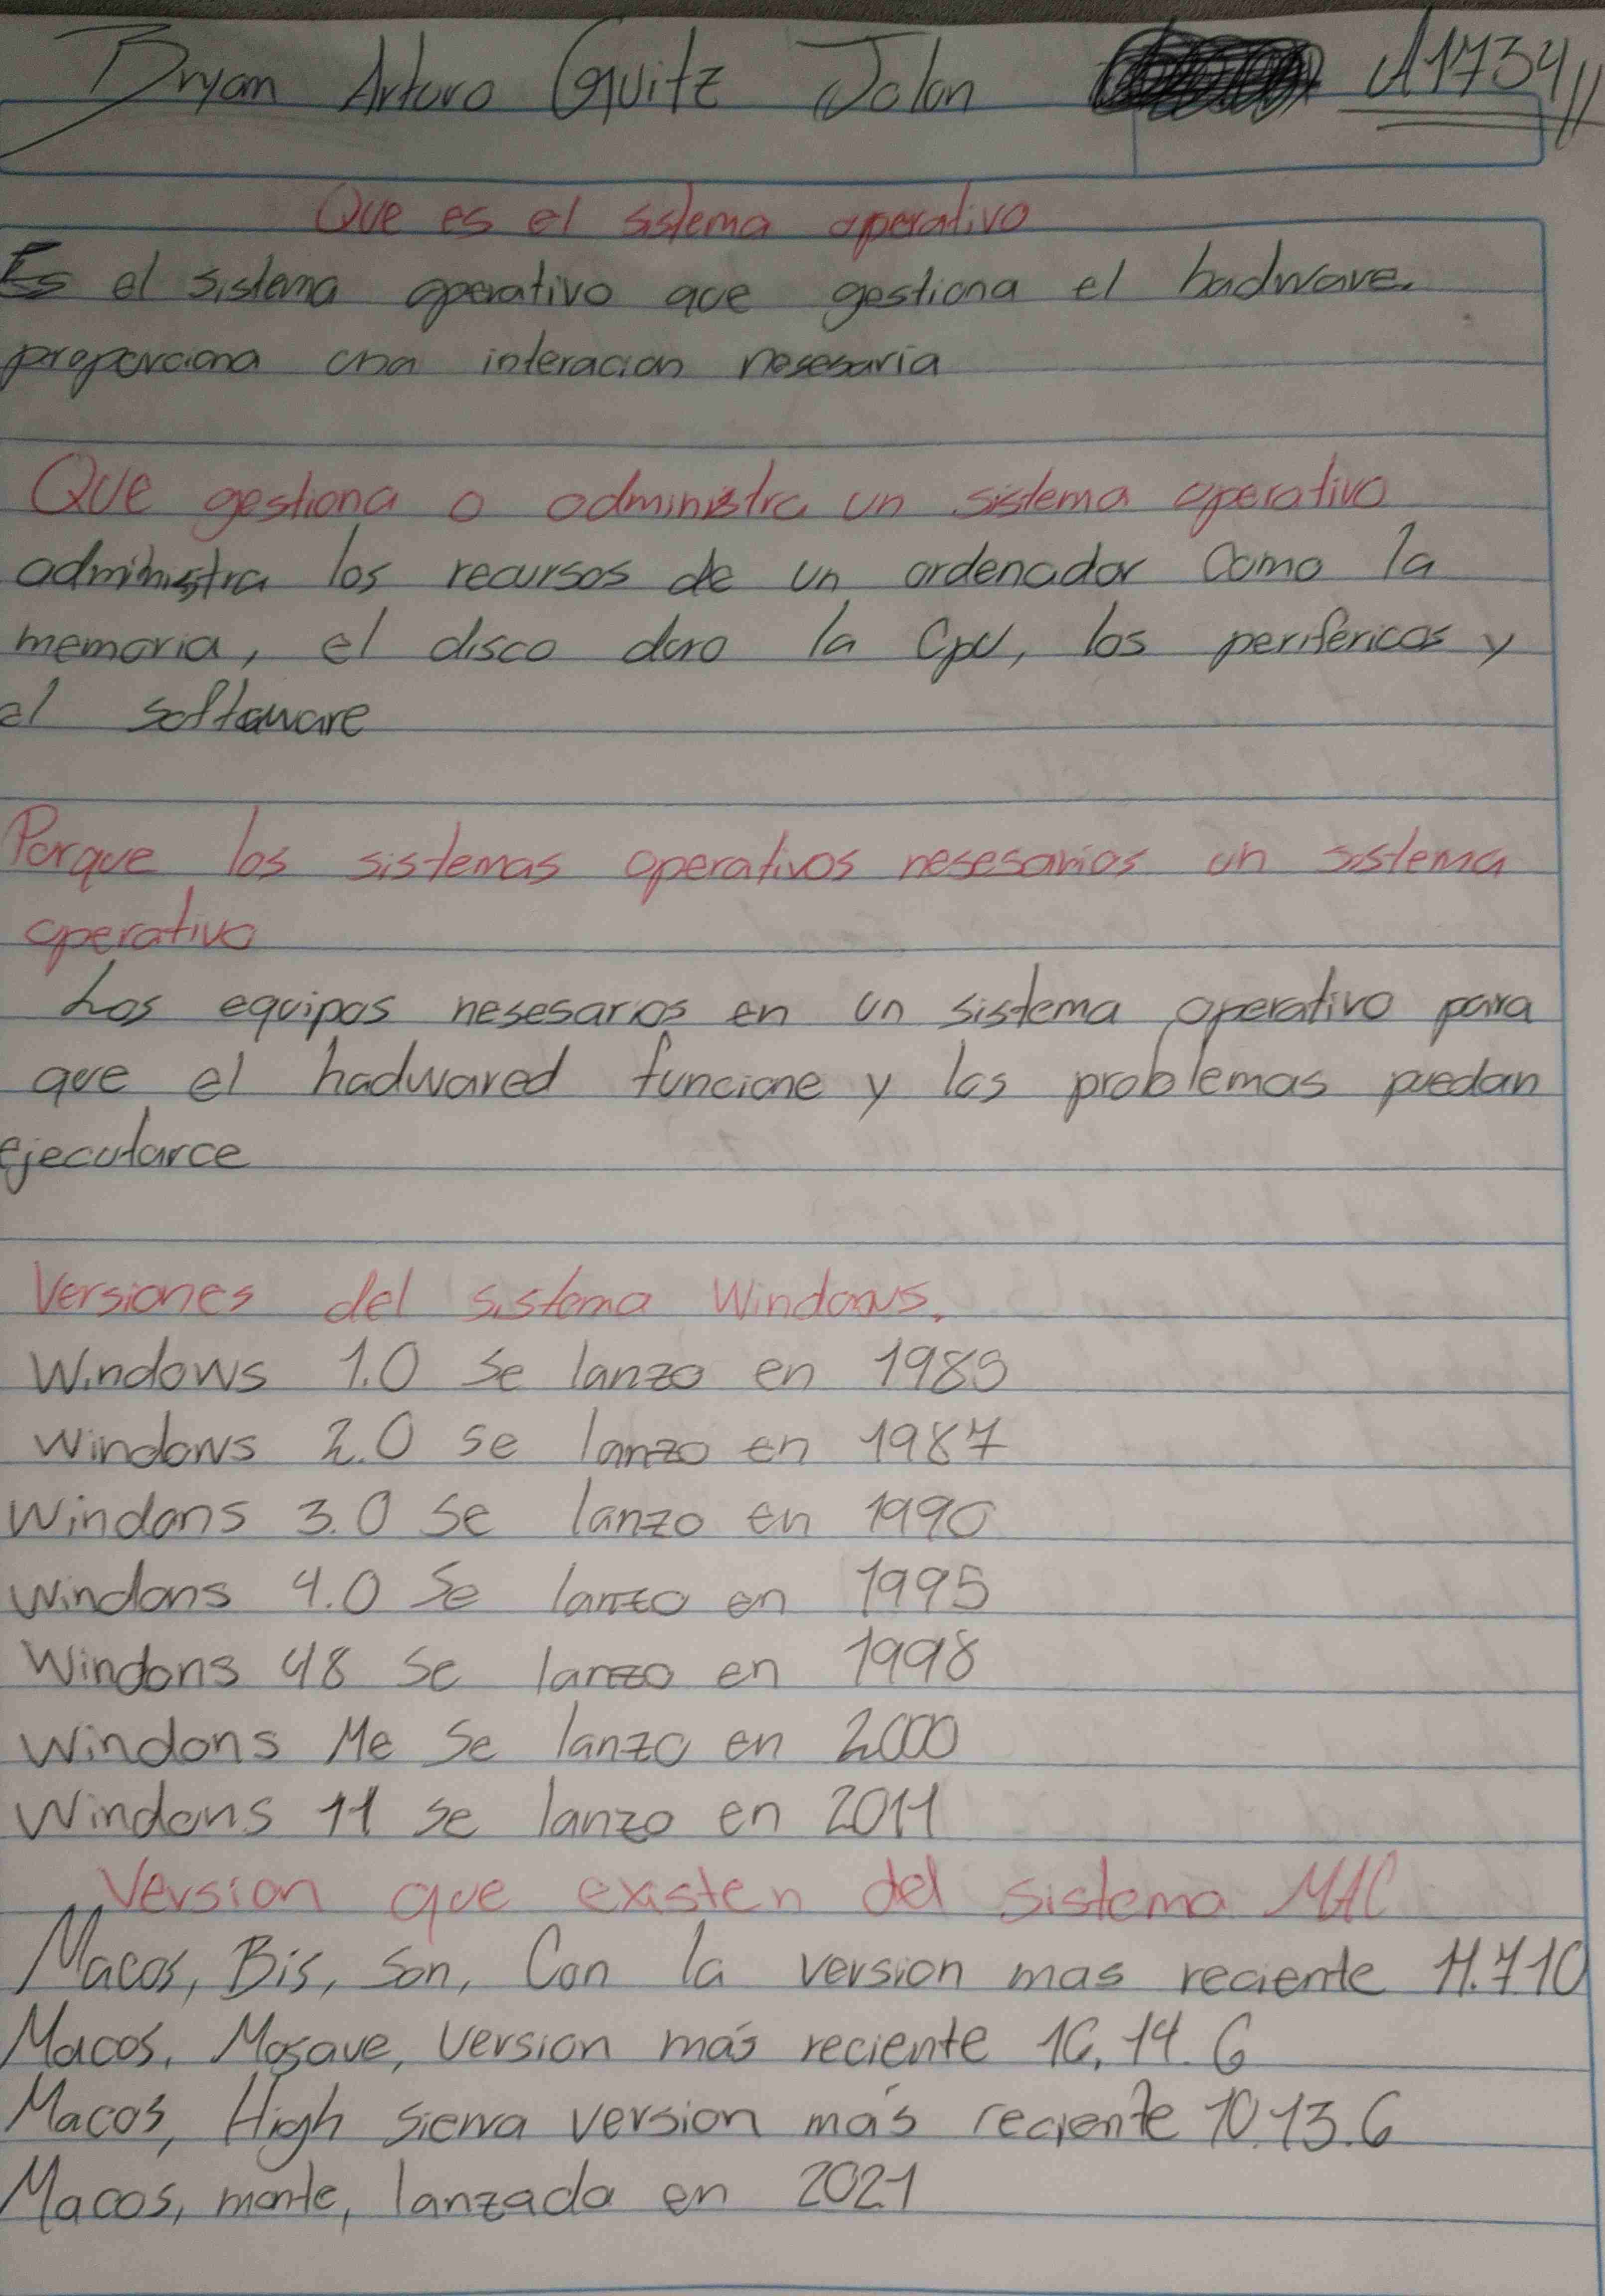 Bryan Arturo Guitz Jolon A1734
Que es el sistema operativo
Es el sistema operativo que gestiona el hadware.
proporciona una interacion nesesaria
Que gestiona o administra un sistema operativo
administra los recursos de un ordenador como la
memoria, el disco duro la Cpu, los perifericos y
el softaware
Porque los sistemas operativos nesesarios un sistema
operativo
Los equipos nesesarios en un sistema operativo para
que el hadwared funcione y los problemas puedan
ejecutarce
Versiones del sistema Windows.
Windows 1.0 se lanzo en 1985
Windows 2.0 se lanzo en 1987
Windows 3.0 se lanzo en 1990
Windows 4.0 se lanzo en 1995
Windows 98 se lanzo en 1998
Windows Me se lanzo en 2000
Windows 11 se lanzo en 2011
Version que existen del sistema MAC
Macos, Bis, Son, Con la version mas reciente 11.7.10
Macos, Mosave, version más reciente 10.14.6
Macos, High sierra version más reciente 10.13.6
Macos, monte, lanzada en 2021